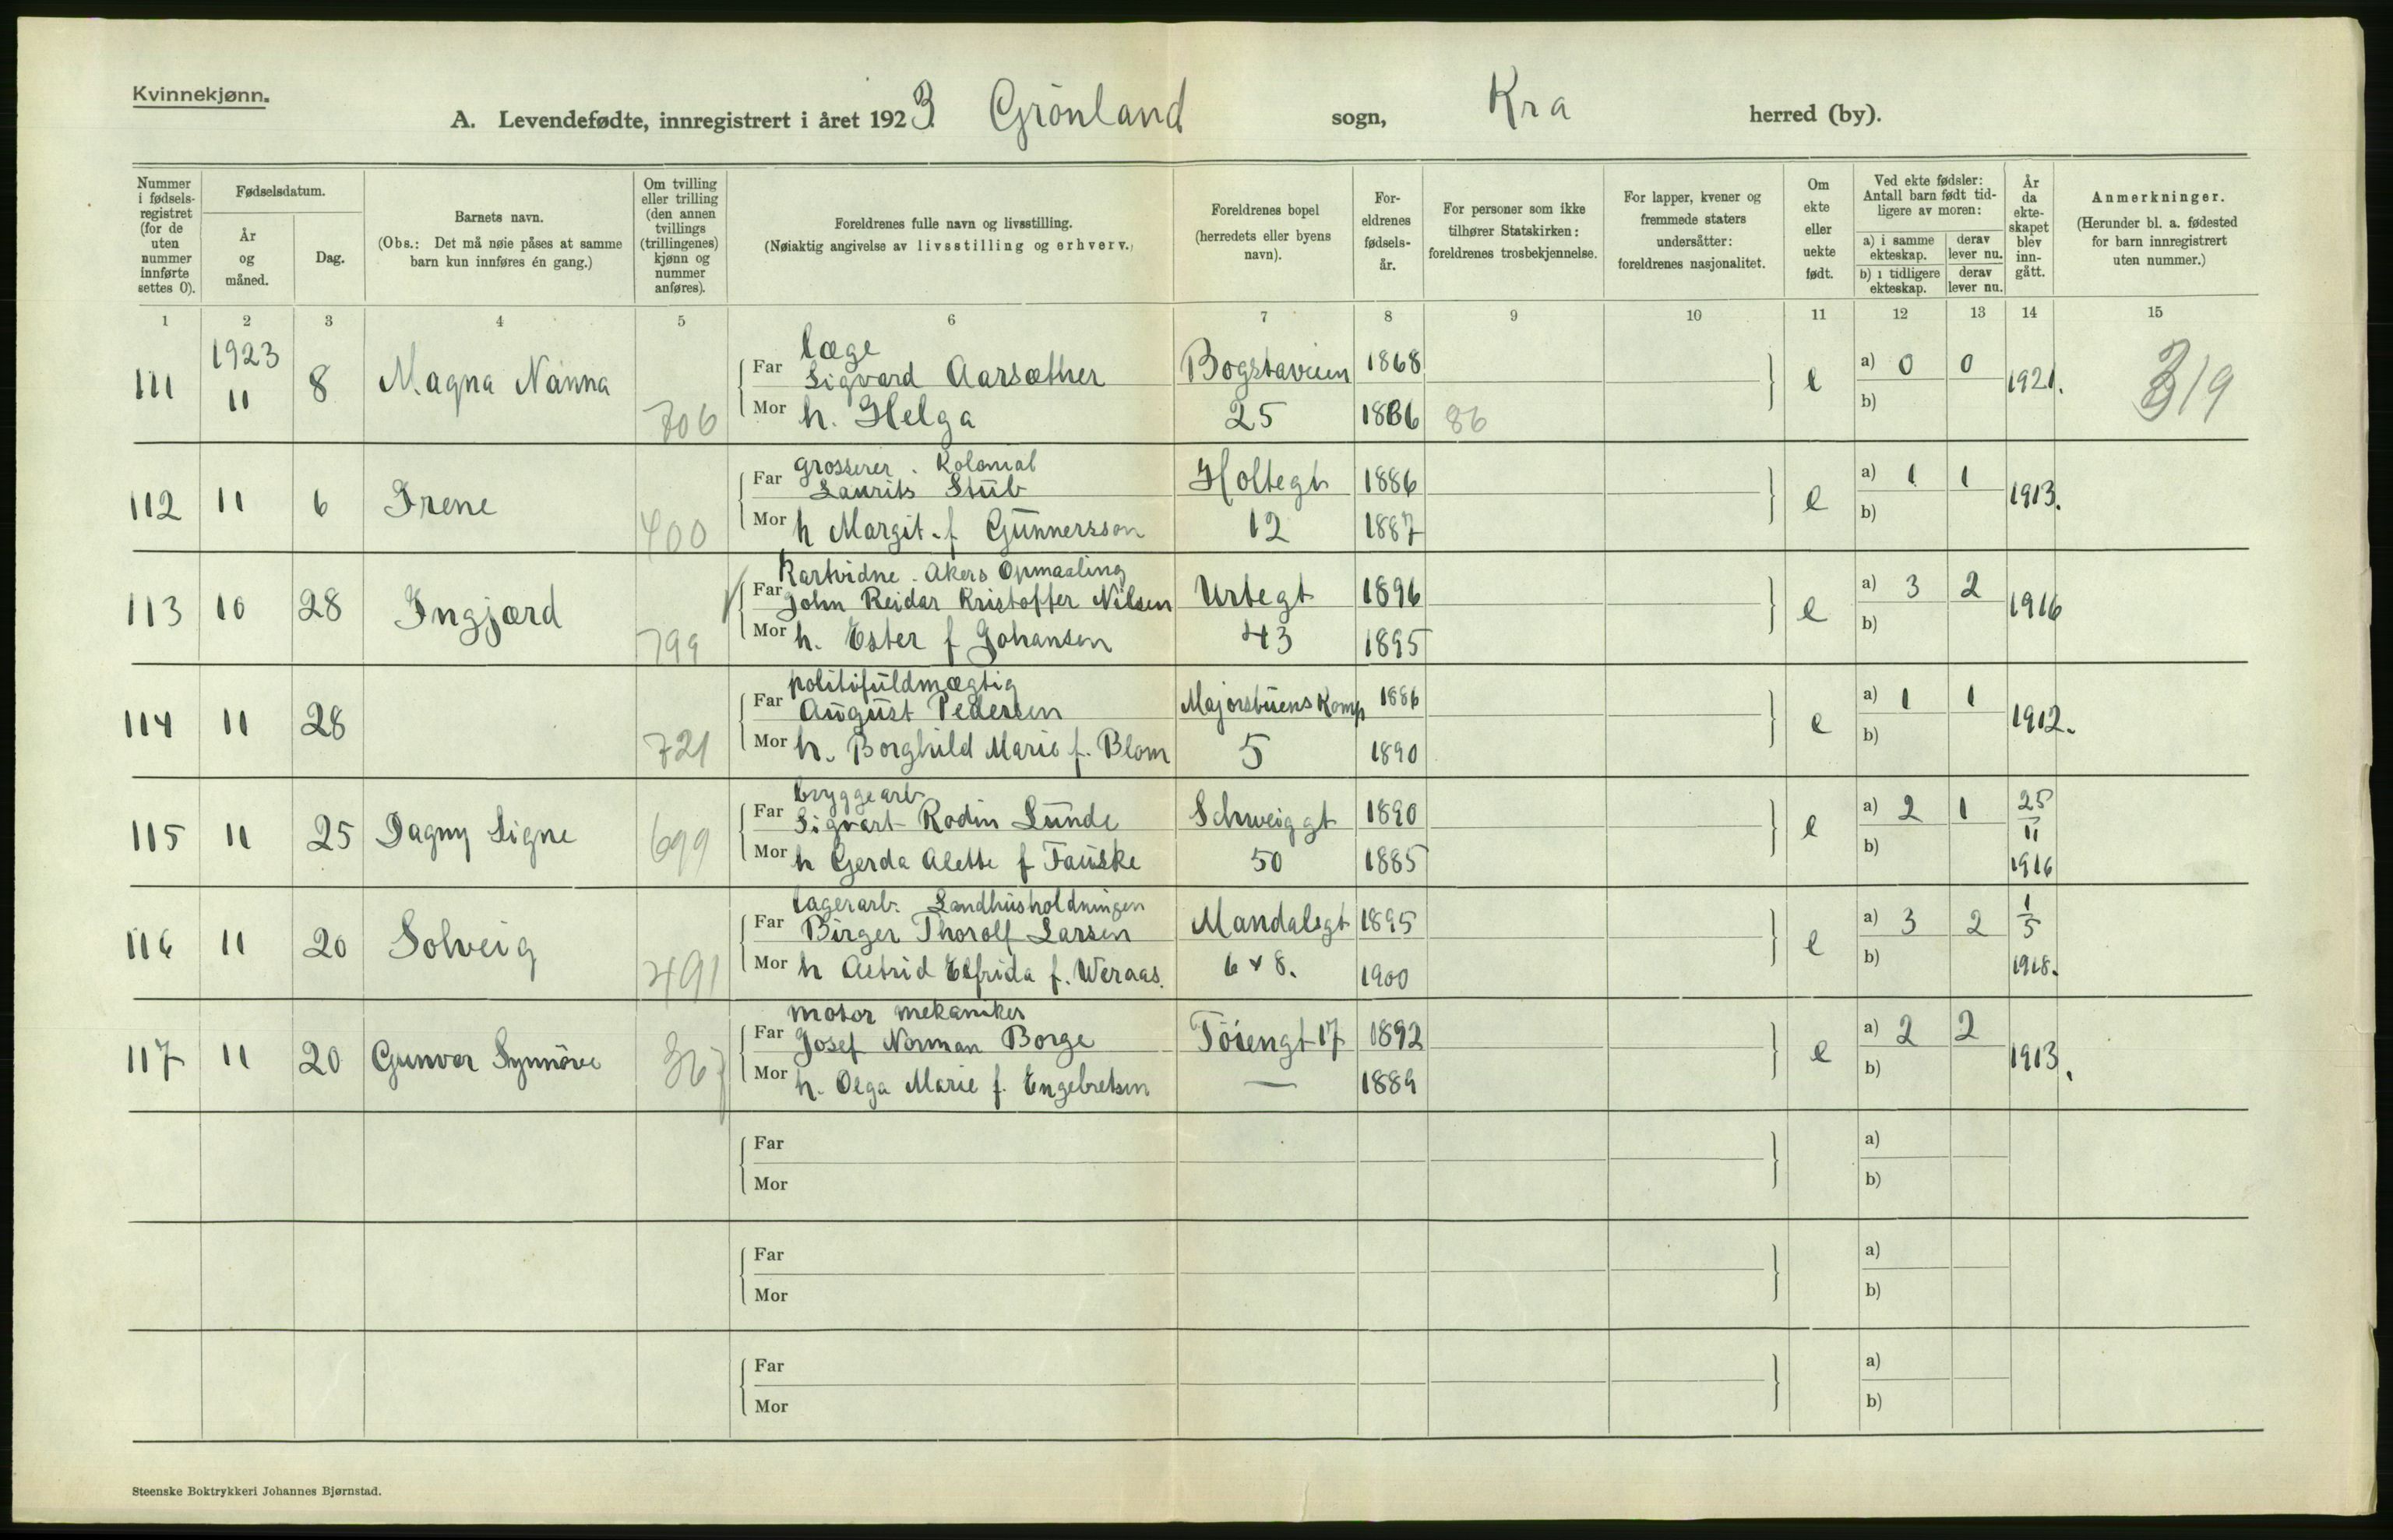 Kvinnekjønn.
A. Levendefødte, innregistrert i året 1923. Grönland sogn, Kra herred (by).
Nummer i fødsels-registret (for de uten nummer innførte settes 0).
Fødselsdatum.
År og måned.
Dag.
Barnets navn.
(Obs.: Det må nøie påses at samme barn kun innføres én gang.)
Om tvilling eller trilling (den annen tvillings (trillingenes) kjønn og nummer anføres).
Foreldrenes fulle navn og livsstilling.
(Nøiaktig angivelse av livsstilling og erhverv.)
Foreldrenes bopel (herredets eller byens navn).
For-eldrenes fødsels-år.
For personer som ikke tilhører Statskirken: foreldrenes trosbekjennelse.
For lapper, kvener og fremmede staters undersåtter: foreldrenes nasjonalitet.
Om ekte eller uekte født.
Ved ekte fødsler: Antall barn født tid-ligere av moren:
a) i samme ekteskap. derav lever nu.
b) i tidligere ekteskap. derav lever nu.
År da ekte-skapet blev inn-gått.
Anmerkninger.
(Herunder bl. a. fødested for barn innregistrert uten nummer.)
1 2 3 4 5 6 7 8 9 10 11 12 13 14 15
1923 læge
111 11 8 Magna Nanna Far Sigvard Aarsæther Bogstaveien 1868 e a) 0 0 1921. 319
706 Mor h. Helga 25 1886 86 b)
grosserer. Kolonial
112 11 6 Irene Far Laurits Stub Holtegt 1886 e a) 1 1 1913.
400 Mor h Margit. f Gunnersson 12 1887 b)
Kartvidne. Akers Opmaaling
113 10 28 Ingjærd Far John Reidar Kristoffer Nilsen Urtegt 1896 e a) 3 2 1916
799 Mor h. Ester f Johansen 43 1895 b)
politifuldmægtig
114 11 28 Far August Pedersen Majorstuens Komp 1886 e a) 1 1 1912.
721 Mor h. Borghild Marie f. Blom 5 1890 b)
bryggearb.
115 11 25 Dagny Signe Far Sigvart Rodin Lunde Schweiggt 1890 e a) 2 1 25/11 1916
699 Mor h Gerda Alette f Fauske 50 1885 b)
lagerarb. Landhusholdningen
116 11 20 Solveig Far Birger Thorolf Larsen Mandalsgt 1895 e a) 3 2 1/5 1918.
491 Mor h Astrid Elfrida f. Weraas. 6 + 8. 1900 b)
motor mekaniker
117 11 20 Gunvor Synnöve Far Josef Norman Borge Töiengt 17 1892 e a) 2 2 1913.
Mor h. Olga Marie f. Engebretsen — 1889 b)
Far a)
Mor b)
Far a)
Mor b)
Far a)
Mor b)
Steenske Boktrykkeri Johannes Bjørnstad.